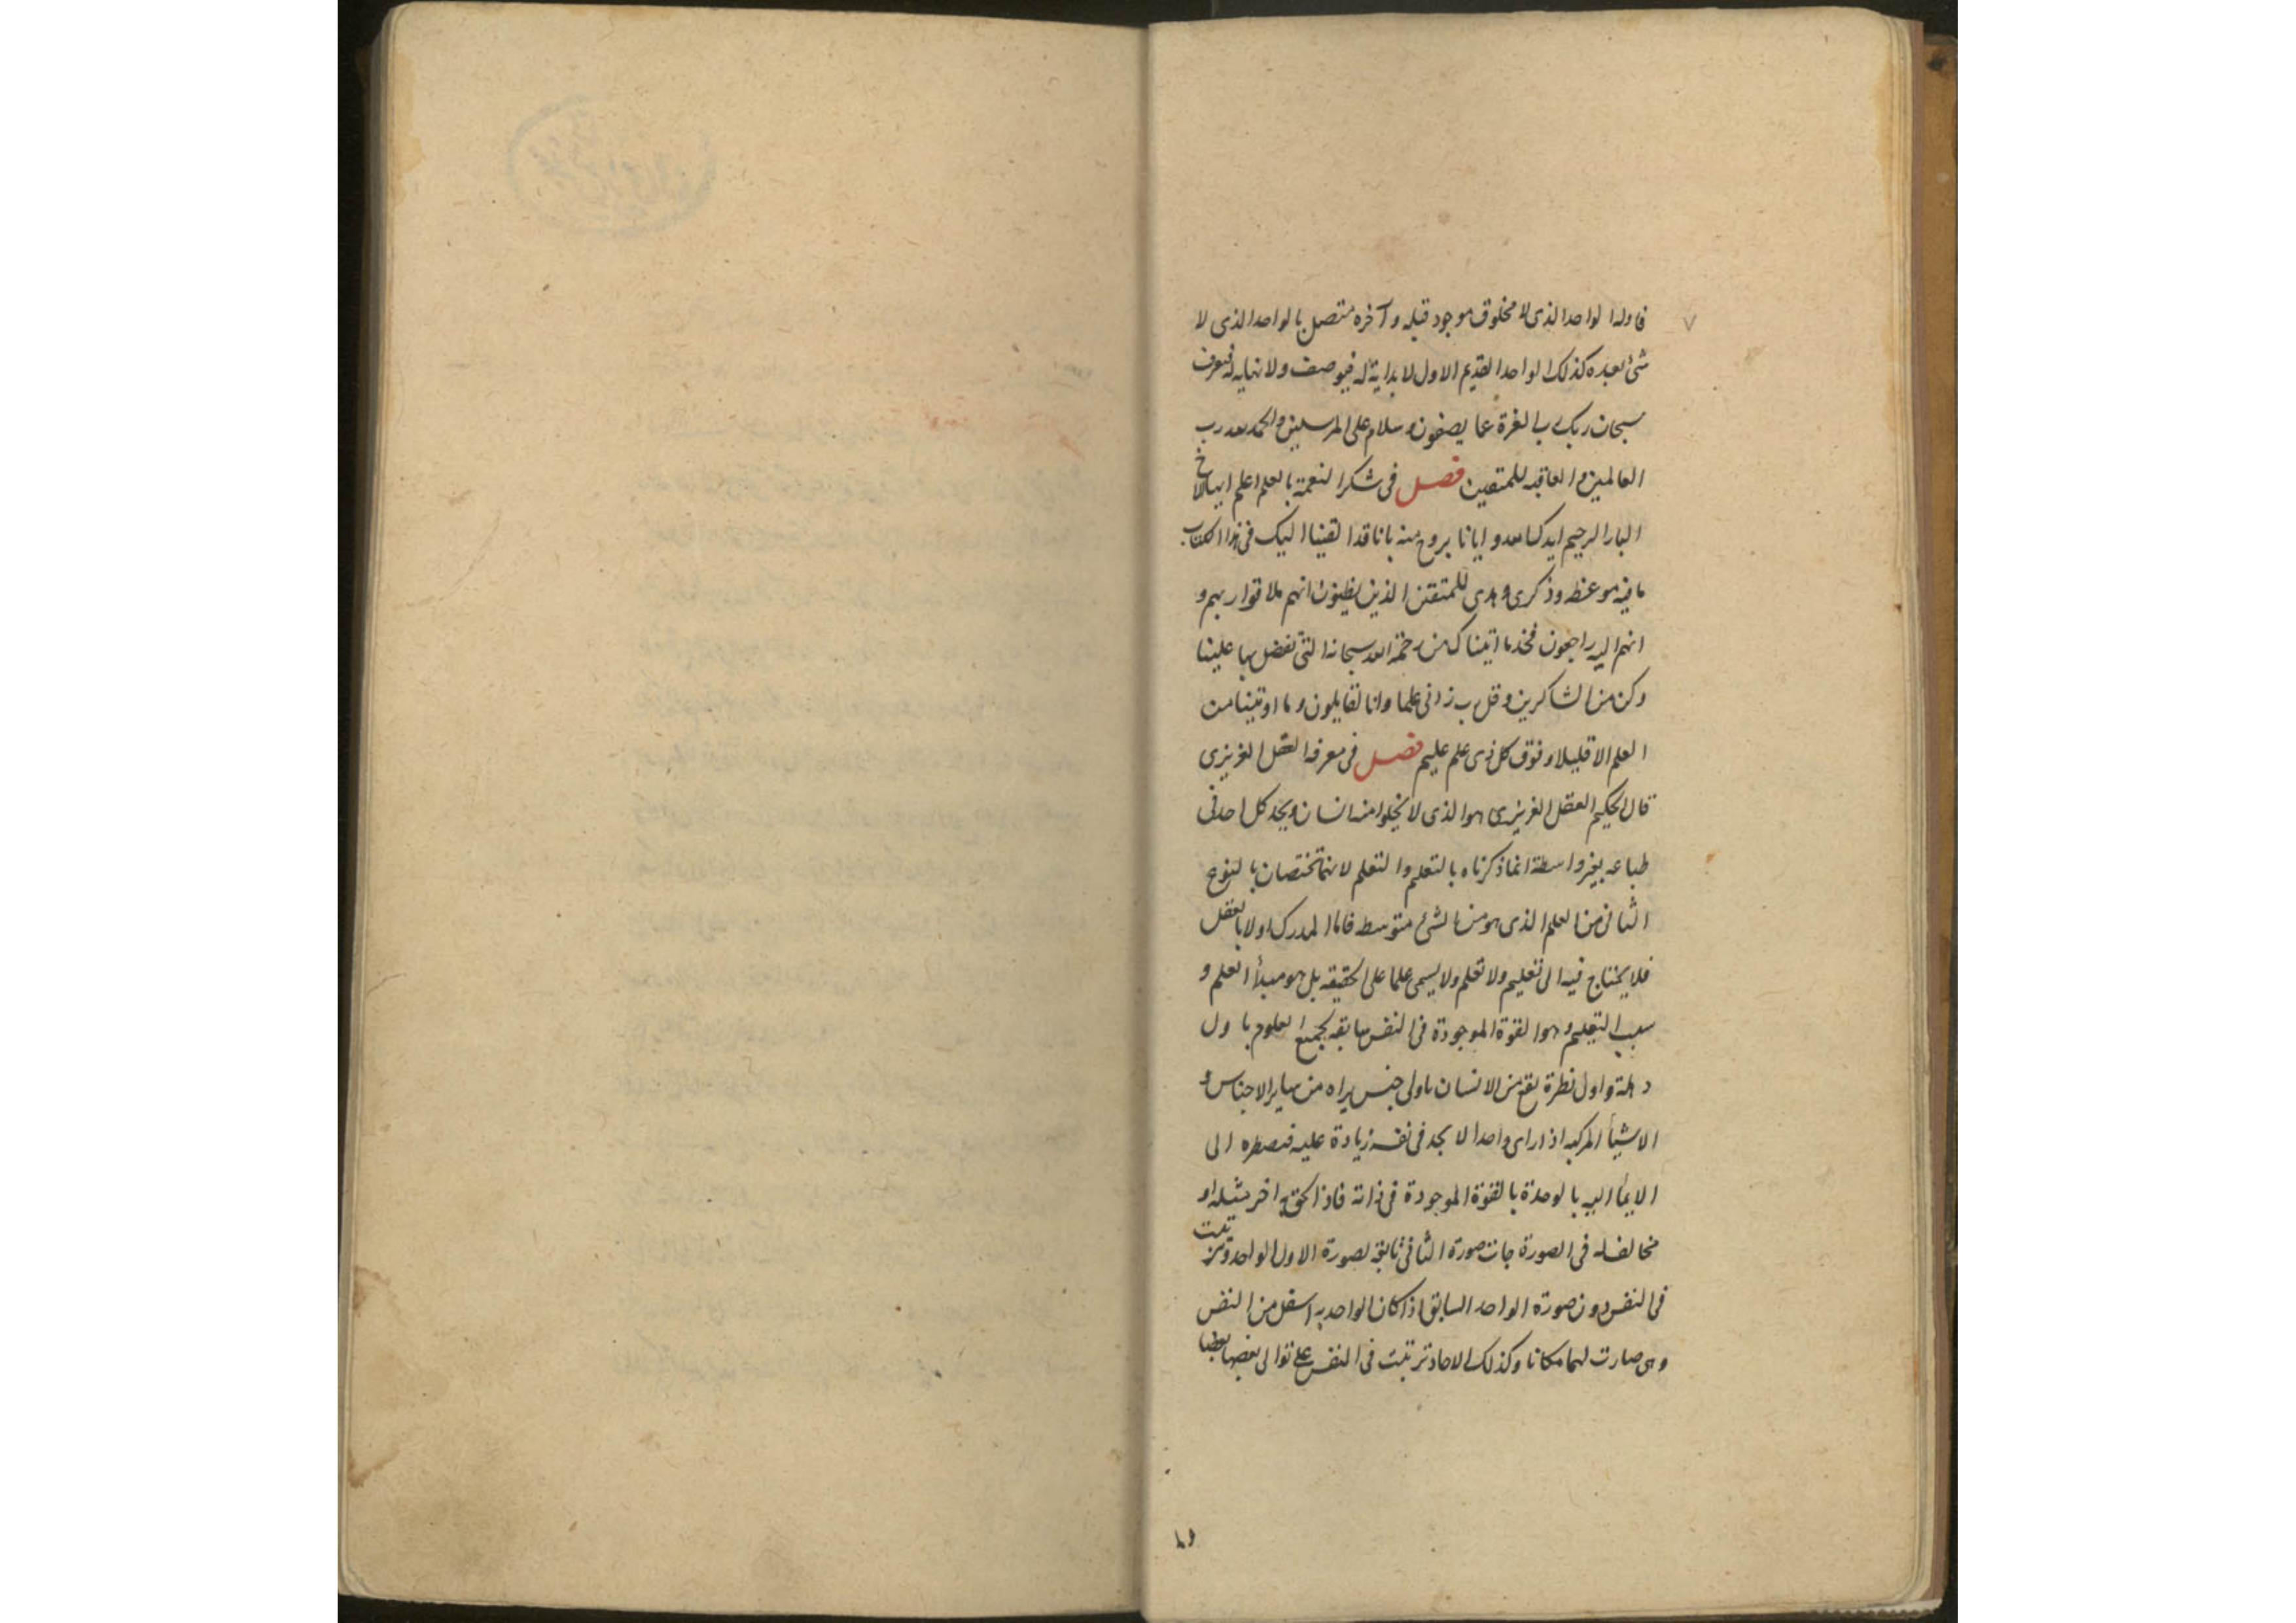 فاوله الواحد الذى لا مخلوق موجود قبله وآخره متصل بالواحد الذى لا
شئ بعده كذلك الواحد القديم الاول لا بداية له فيوصف ولا نهايه له فيعرف
سبحان ربك رب العزة عما يصفون وسلام على المرسلين والحمد لله رب
العالمين والعاقبه للمتقين فصل فى شكر النعمة بالعلم اعلم ايها الاخ
البار الرحيم ايدك الله وايانا بروح منه بانا قد القينا اليك فى هذا الكتاب
ما فيه موعظه وذكرى وهدى للمتقين الذين يظنون انهم ملاقوا ربهم و
انهم اليه راجعون فخذ ما اتيناك من رحمة الله سبحانه التى تفضل بها علينا
وكن من الشاكرين وقل رب زدنى علما وانا لقايلون وما اوتينا من
العلم الا قليلا وفوق كل ذى علم عليم فصل فى معرفه العقل الغريزى
قال الحكيم العقل الغريزى هو الذى لا يخلوا منه انسان ويجد كل احد فى
طباعه بغير واسطة انما ذكرناه بالتعليم والتعلم لانهما تختصان بالنوع
الثانى من العلم الذى هو من الشئ متوسط فاما المدرك اولا بالعقل
فلا يحتاج فيه الى تعليم ولا تعلم ولا يسمى علما على الحقيقه بل هو مبدأ العلم و
سبب التعليم وهو القوة الموجودة فى النفس سابقه لجميع العلوم باول
دهلة واول نظرة تقع من الانسان باولى جنس يراه من ساير الاجناس و
الاشيأ المركبه اذا راى واحدا لا يجد فى نفسه زيادة عليه فيضطره الى
الايمأ اليه بالوحدة بالقوة الموجودة فى ذاته فاذا لحق به اخر مثله او
مخالف له فى الصورة جات صورة الثانى تابقة لصورة الاول الواحد وترتبت
فى النفس دون صورة الواحد السابق اذا كان الواحد به اسفل من النفس
وهى صارت لهما مكانا وكذلك الاحاد ترتبت فى النفس على توالى بعضها بعضا